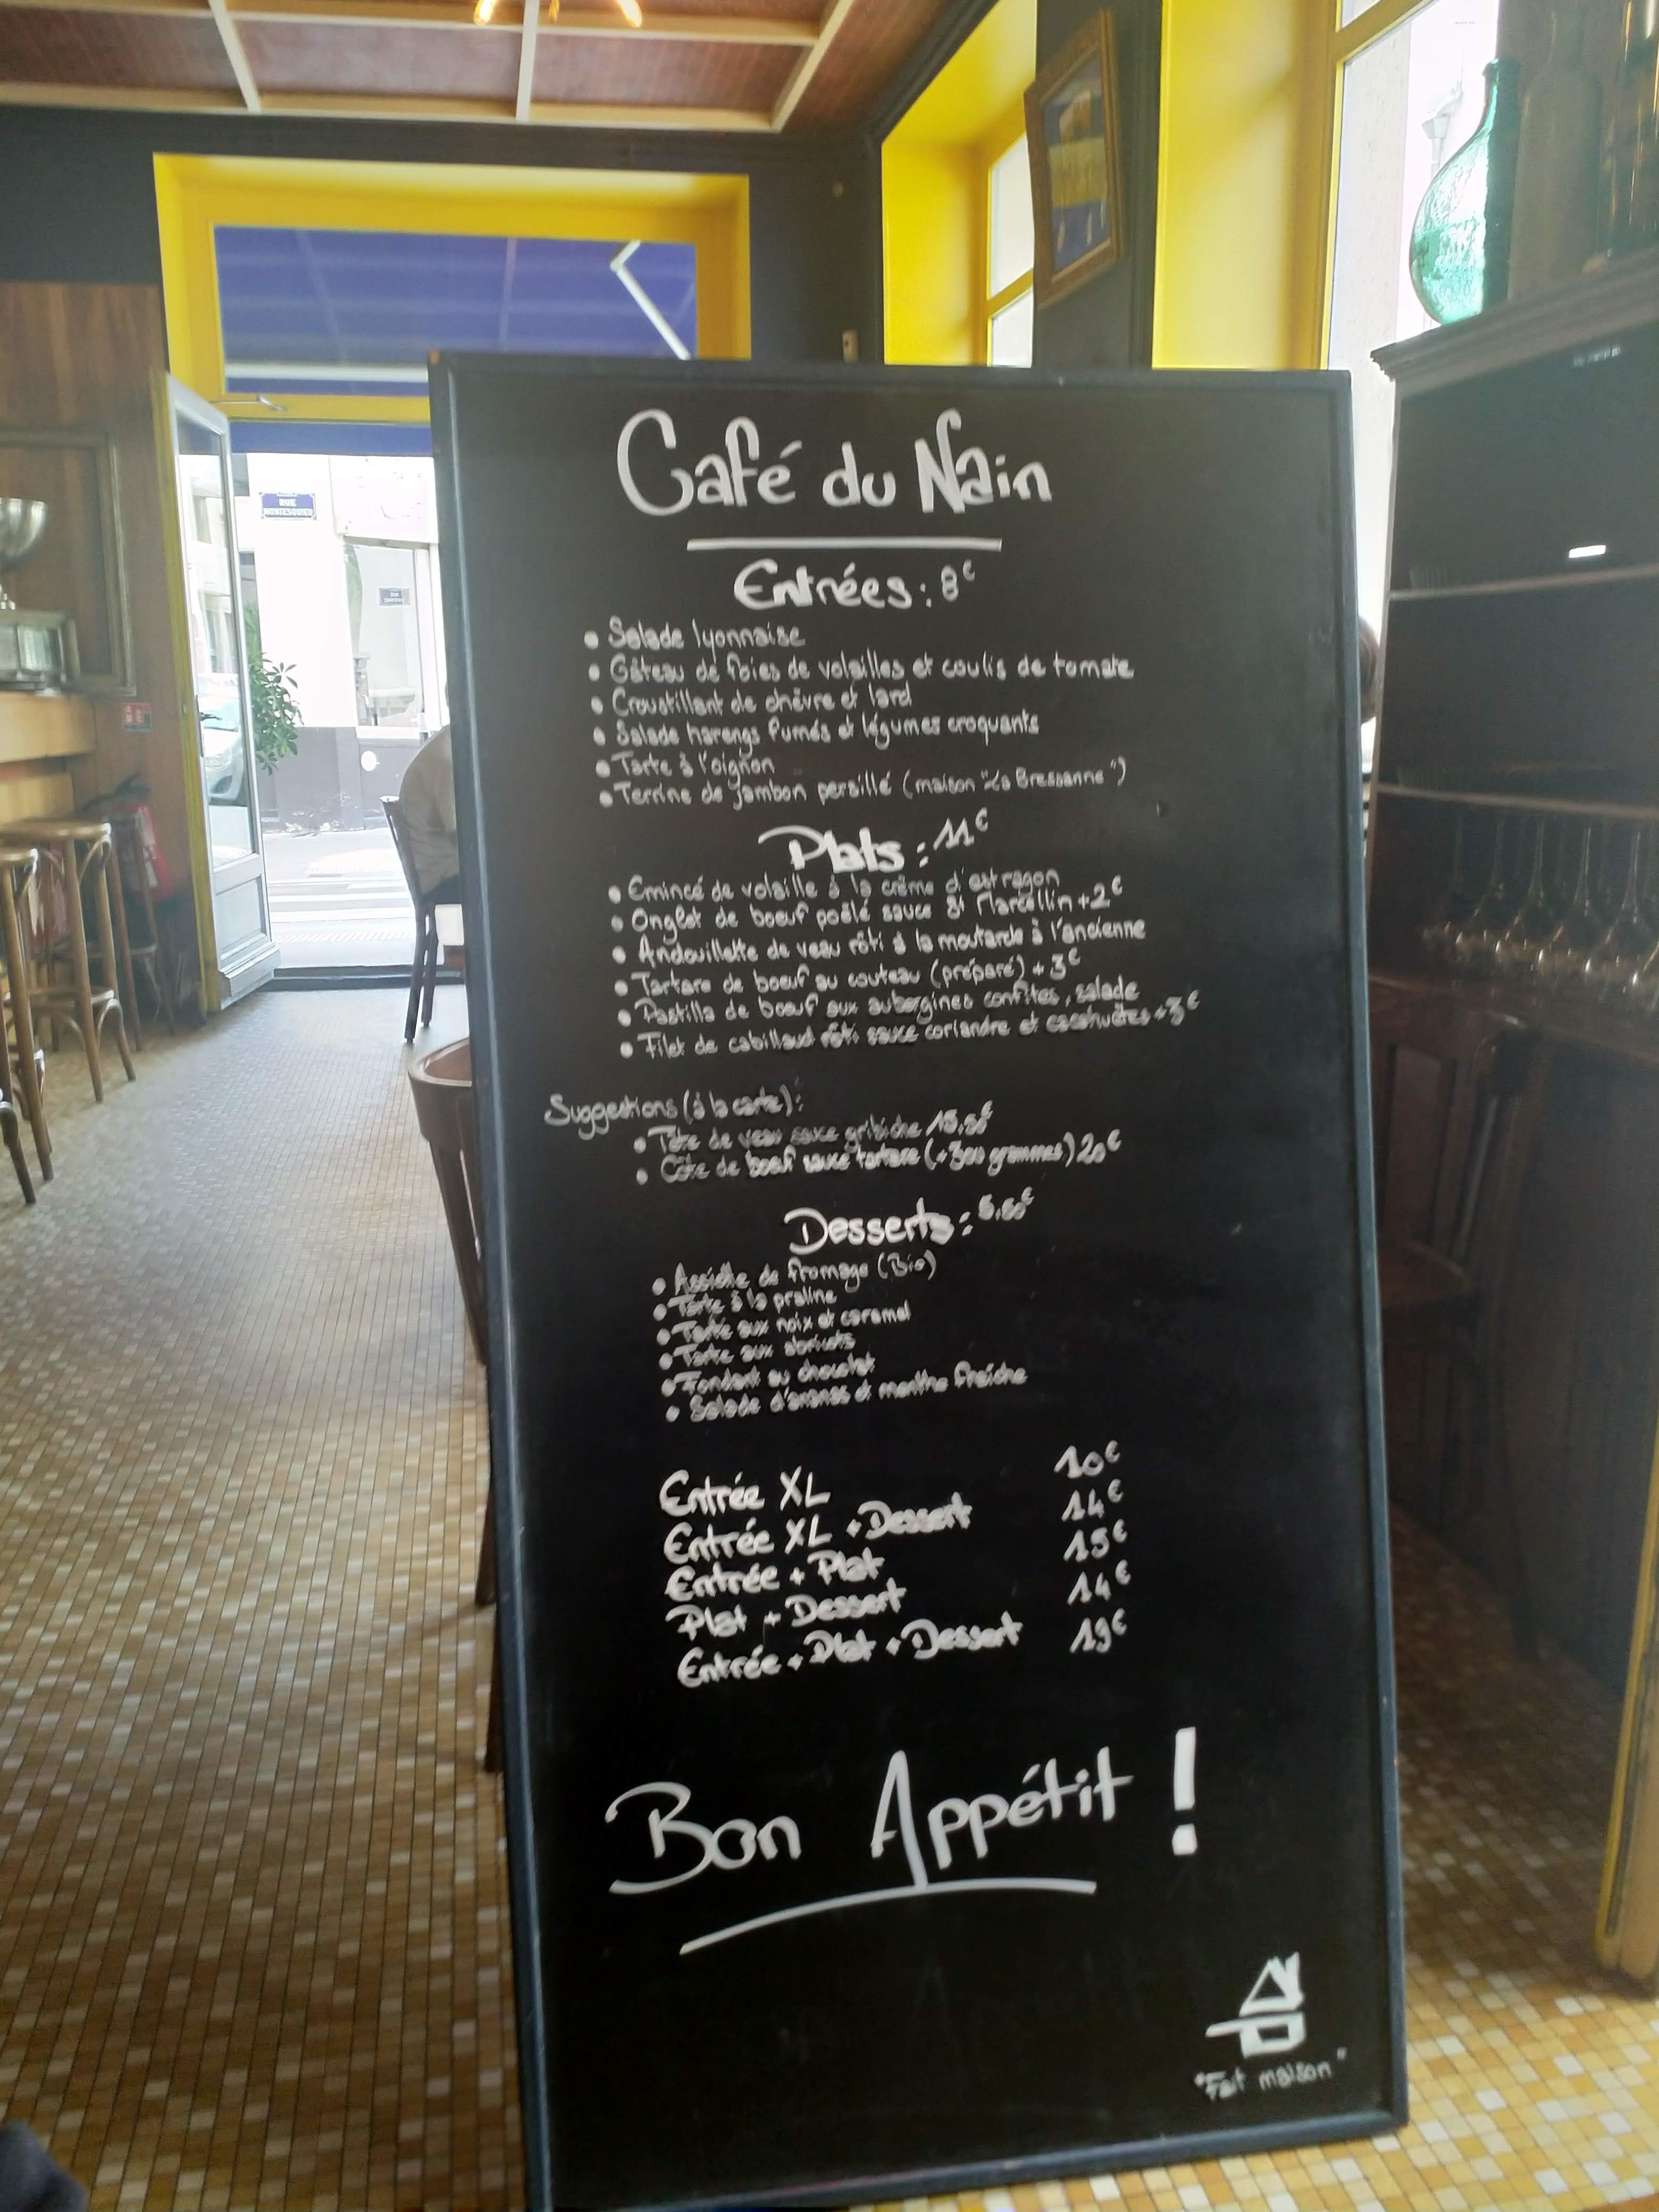 RUE
MONTESQUIEU
Café du Nain
Entrées : 8€
• Salade lyonnaise
• Gâteau de foies de volailles et coulis de tomate
• Croustillant de chèvre et lard
• Salade harengs fumés et légumes croquants
• Tarte à l'oignon
• Terrine de jambon persillé (maison "La Bressanne")
Plats : 11€
• Emincé de volaille à la crème d'estragon
• Onglet de boeuf poêlé sauce St Marcellin +2€
• Andouillette de veau rôti à la moutarde à l'ancienne
• Tartare de boeuf au couteau (préparé) + 3€
• Pastilla de boeuf aux aubergines confites, salade
• Filet de cabillaud rôti sauce coriandre et cacahuètes +3€
Suggestions (à la carte) :
• Tête de veau sauce gribiche 15,50€
• Côte de boeuf sauce tartare (+300 grammes) 20€
Desserts : 5,50€
• Assiette de fromage (Bio)
• Tarte à la praline
• Tarte aux noix et caramel
• Tarte aux abricots
• Fondant au chocolat
• Salade d'ananas et menthe fraîche
Entrée XL 10€
Entrée XL + Dessert 14€
Entrée + Plat 15€
Plat + Dessert 14€
Entrée + Plat + Dessert 19€
Bon Appétit !
"Fait maison"